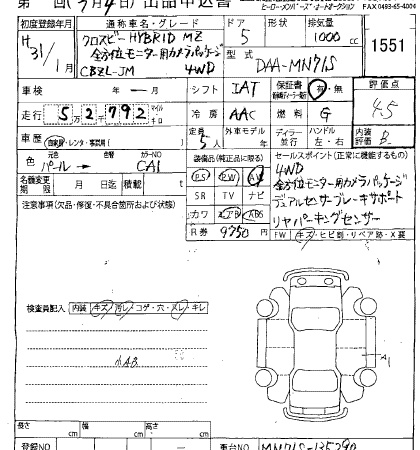 ヒーローメンバーズ・オートオークション FAX 0493-65-4004
初度登録年月 通称車名・グレード ドア 形状 排気量
H31/1 クロスビー HYBRID MZ 5 1000 cc 1551
全方位モニター用カメラパッケージ 型式
CBZL-JM 4WD DAA-MN71S
車検 年 月 シフト IAT 保証書 有・無 評価点
走行 5万2792 マイル キロ 冷房 AAC 燃料 G 4.5
車歴 自家用・レンタ・事故用( ) 定員 5人 外車モデル 年 ディーラー 並行 ハンドル 左・右 内装評価 B
色 元色 パール → 色替 カラーNO CA1
装備品(純正品に限る) セールスポイント(正常に機能するもの)
名義変更期限 月 日迄 積載 t
PS PW AW
4WD
全方位モニター用カメラパッケージ
注意事項(欠品・修復・不具合箇所および状態)
SR TV ナビ
デュアルセンサーブレーキサポート
カワ エアB ABS
リヤパーキングセンサー
R券 9750 円
FW キズ・ヒビ割・リペア跡・X要
検査員記入 内装 キズ・汚レ・コゲ・穴・スレ・キレ
小キズ
A1
長さ cm 幅 cm 高さ cm
登録NO 車台NO MN71S-135290